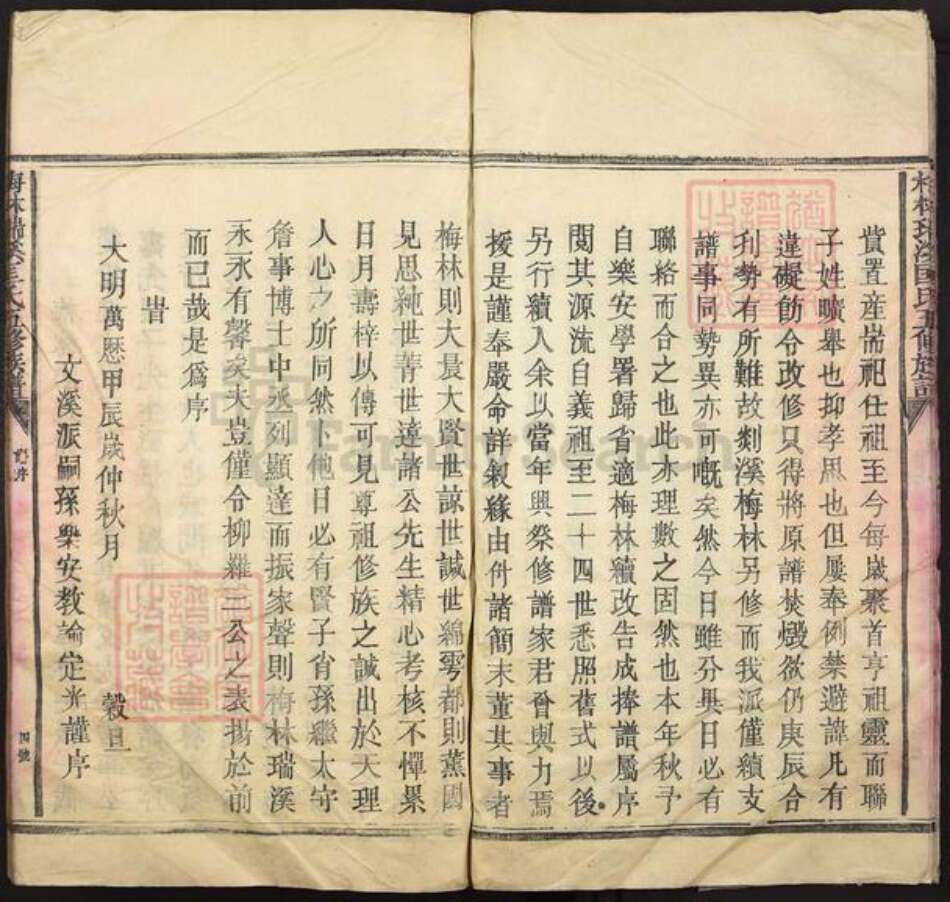 貲置產耑祀仕祖至今每嵗聚首亨祖靈而聯
子姓曠舉也抑孝思也但屢奉例禁避諱凡有
違礙飭令改修只得將原譜焚燬欲仍庚辰合
利勢有所難故剡溪梅林另修而我派僅續支
譜事同勢異亦可嘅矣然今日雖分異日必有
聯絡而合之也此亦理數之固然也本年秋予
自樂安學署歸省適梅林續改告成捧譜屬序
閱其源流自義祖至二十四世悉照舊式以後
另行續入余以當年興祭修譜家君曾與力焉
援是謹奉嚴命詳敘緣由付諸簡末董其事者
梅林則大晟大賢世諒世誠世綿雩都則薰國
見思純世菁世達諸公先生精心考核不憚累
日月壽梓以傳可見尊祖修族之誠出於天理
人心之所同然卜他日必有賢子肖孫繼太守
詹事博士中丞列顯達而振家聲則梅林瑞溪
永永有馨矣夫豈僅令柳雞三公之表揚於前
而已哉是爲序
旹
大明萬厯甲辰嵗仲秋月 穀旦
文溪派嗣孫樂安教諭定光謹序
梅林瑞溪 氏五修族譜
序
四號